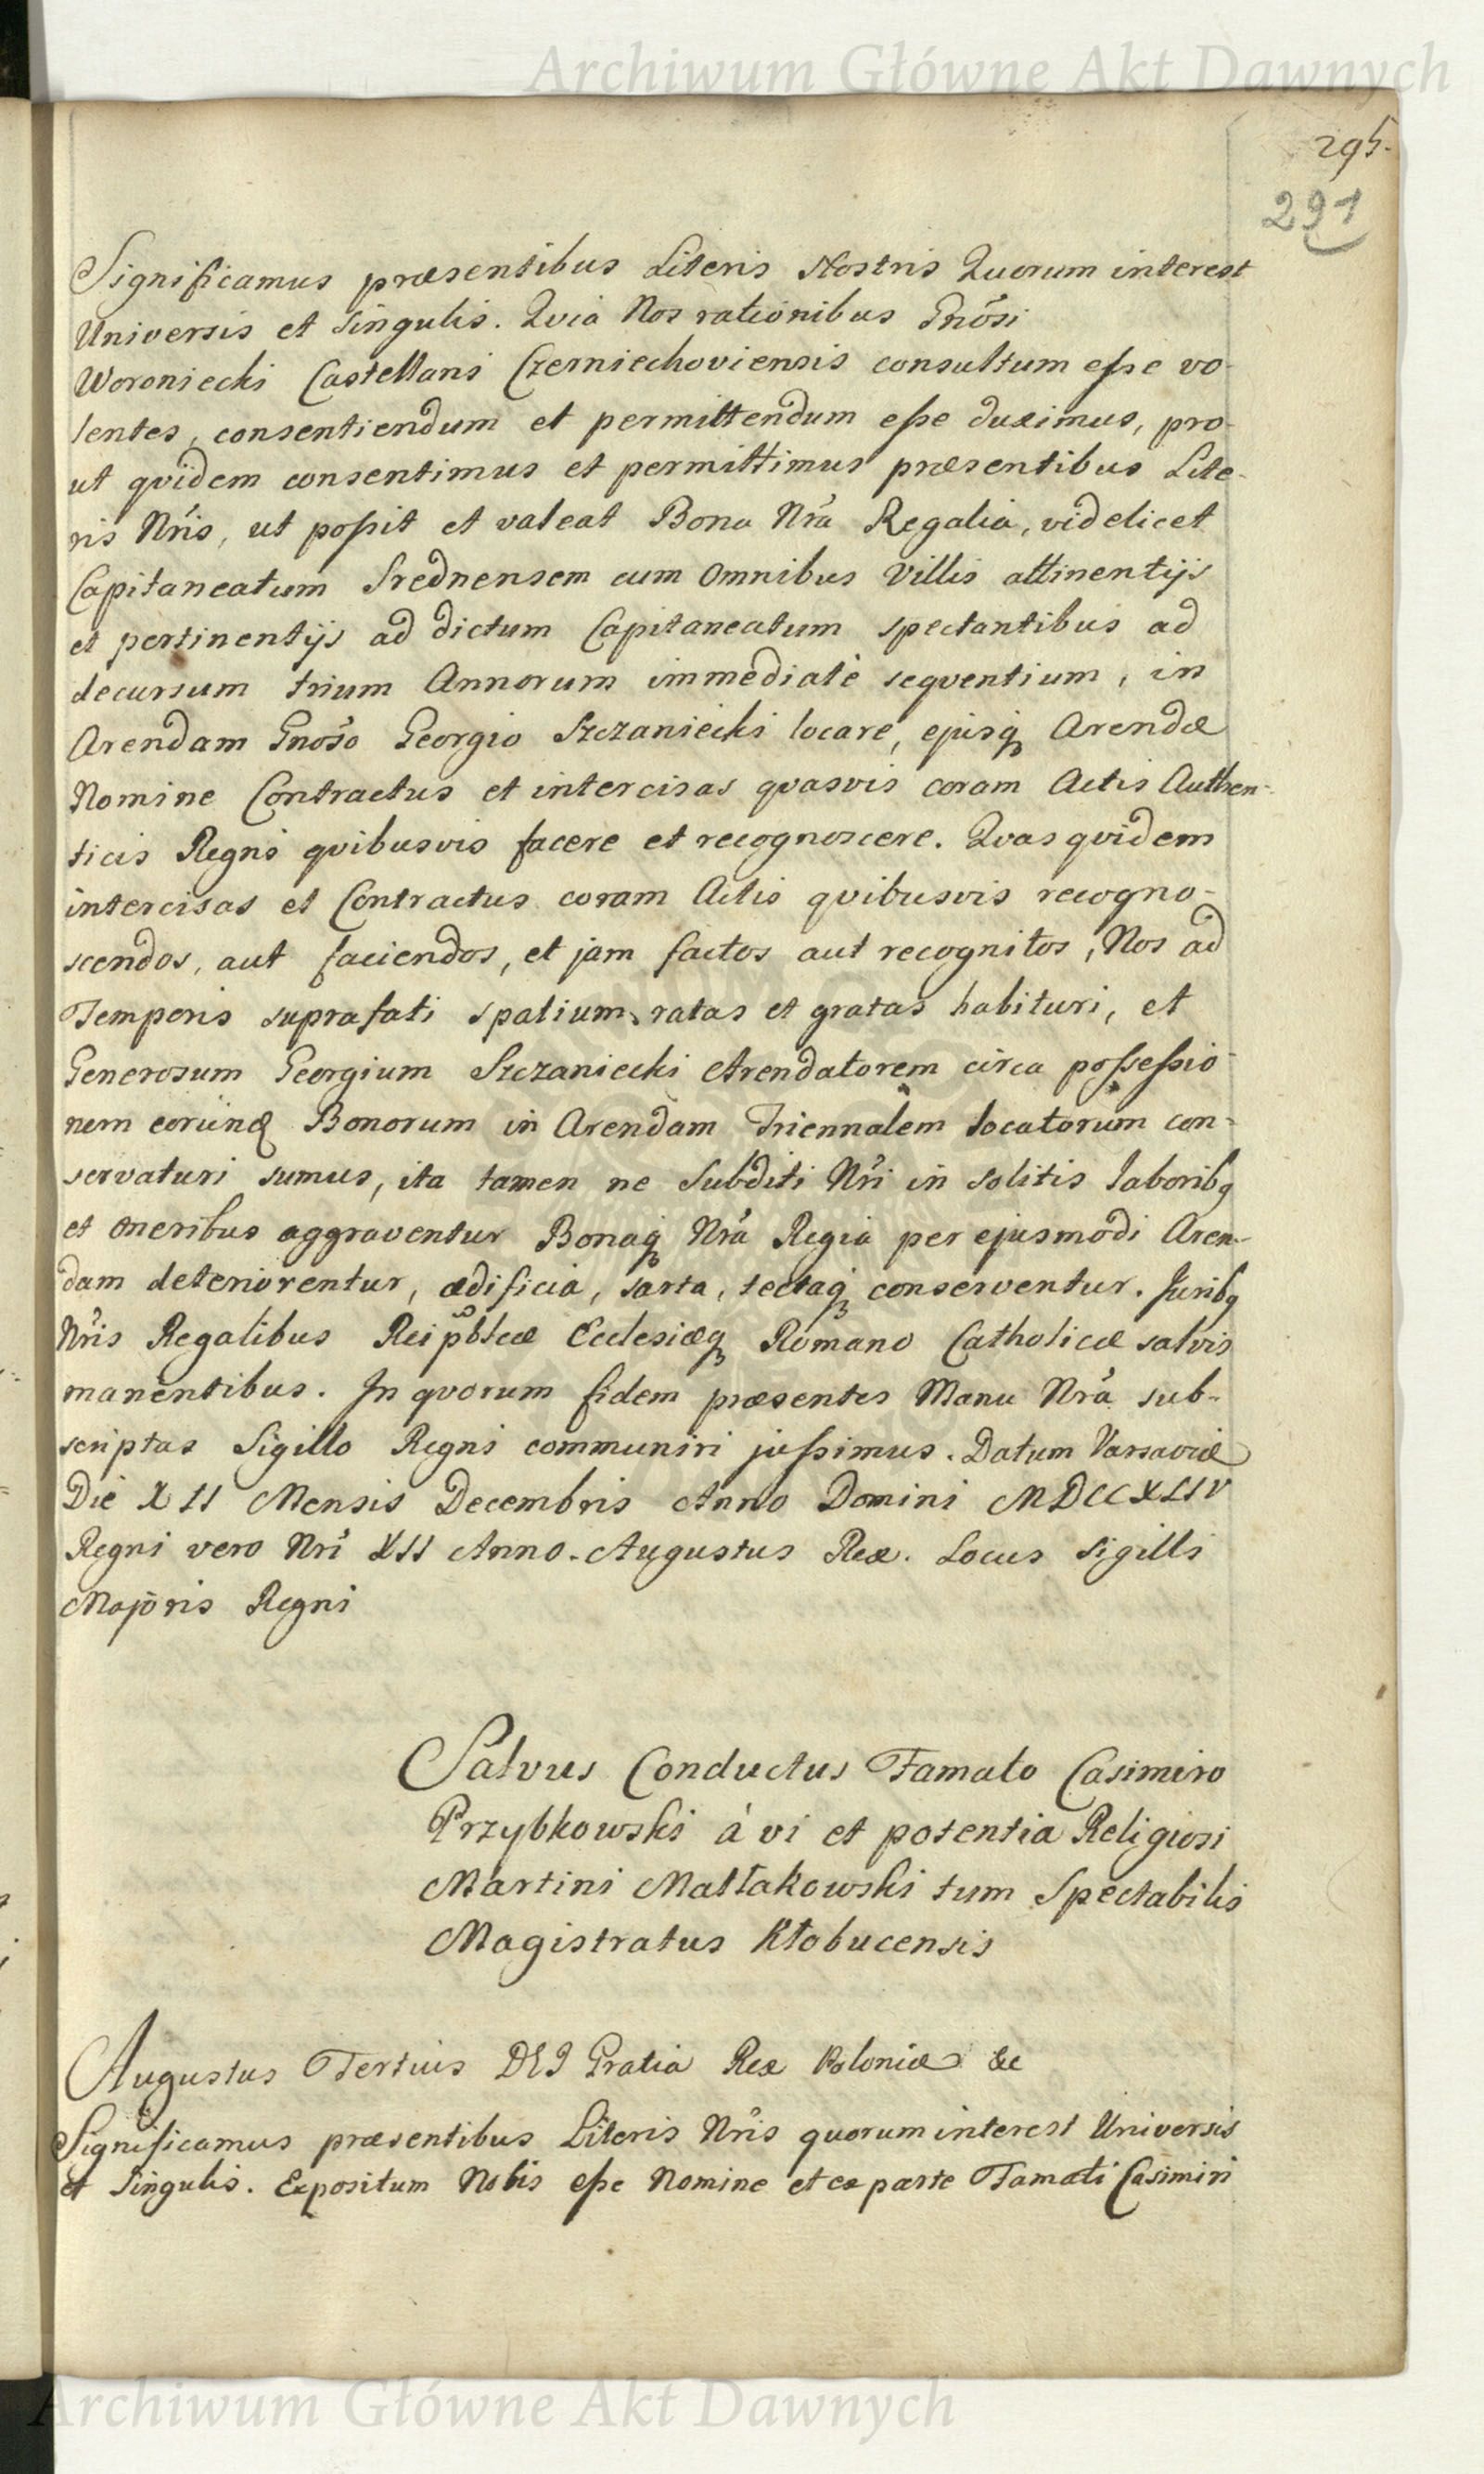 Archiwum Główne Akt Dawnych
295.
291
Significamus præsentibus Literis Nostris Quorum interest
Universis et singulis. Qvia Nos rationibus Gnosi
Woroniecki Castellani Czerniechoviensis consultum esse vo-
lentes, consentiendum et permittendum esse duximus, pro-
ut qvidem consentimus et permittimus præsentibus Lite-
ris Nris, ut possit et valeat Bona Nra Regalia, videlicet
Capitaneatum Srednensem cum Omnibus Villis attinentijs
et pertinentijs ad dictum Capitaneatum spectantibus ad
decursum trium Annorum immediatè seqventium, in
Arendam Gnoso Georgio Szczaniecki locare, ejusq Arendæ
Nomine Contractus et intercisas qvasvis coram Actis Authen-
ticis Regni qvibusvis facere et recognoscere. Qvas qvidem
intercisas et Contractus coram Actis qvibusvis recogno-
scendos, aut faciendos, et jam factos aut recognitos, Nos ad
Temporis suprafati spatium, ratas et gratas habituri, et
Generosum Georgium Szczaniecki Arendatorem circa possessio-
nem eorund Bonorum in Arendam Triennalem locatorum con-
servaturi sumus, ita tamen ne Subditi Nri in solitis laborib9
et oneribus aggraventur Bonaq Nra Regia per ejusmodi Aren-
dam deteriorentur, ædificia, sarta, tectaq conserventur. Jurib9
Nris Regalibus Reipblcæ Ecclesiæq Romano Catholicæ salvis
manentibus. In qvorum fidem præsentes Manu Nrâ sub-
scriptas Sigillo Regni communiri jussimus. Datum Varsaviæ
Die XII Mensis Decembris Anno Domini MDCCXLIV
Regni vero Nri XII Anno. Augustus Rex. Locus sigilli
Majoris Regni
Salvus Conductus Famato Casimiro
Przybkowski à vi et potentia Religiosi
Martini Mattakowski tum Spectabilis
Magistratus Kłobucensis
Augustus Tertius DEI Gratia Rex Poloniæ &c
Significamus præsentibus Literis Nris quorum interest Universis
et Singulis. Expositum Nobis esse Nomine et ex parte Famati Casimiri
Archiwum Główne Akt Dawnych